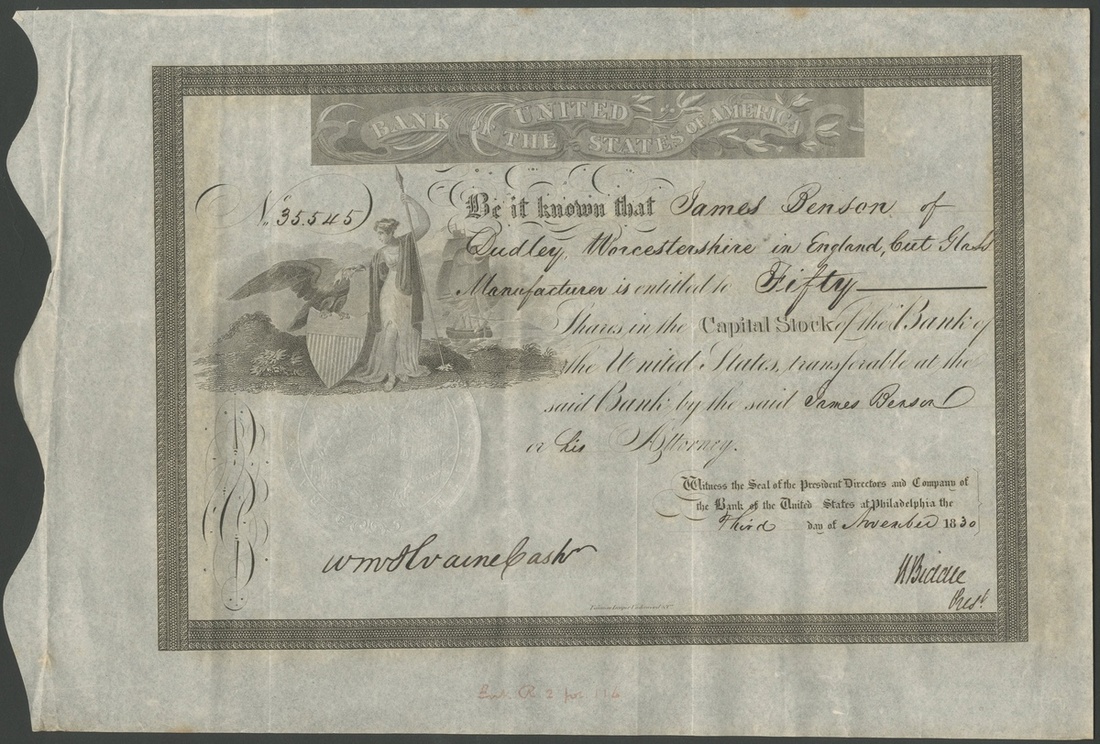 BANK UNITED
THE STATES OF AMERICA
No. 35.545
Be it known that James Benson of
Dudley, Worcestershire in England, Cut Glass
Manufacturer is entitled to Fifty
Shares in the Capital Stock of the Bank of
the United States, transferable at the
said Bank by the said James Benson
or his Attorney.
Witness the Seal of the President Directors and Company of
the Bank of the United States at Philadelphia the
Third day of November 1830
Wm McIlvaine Cashr
N Biddle
Prest